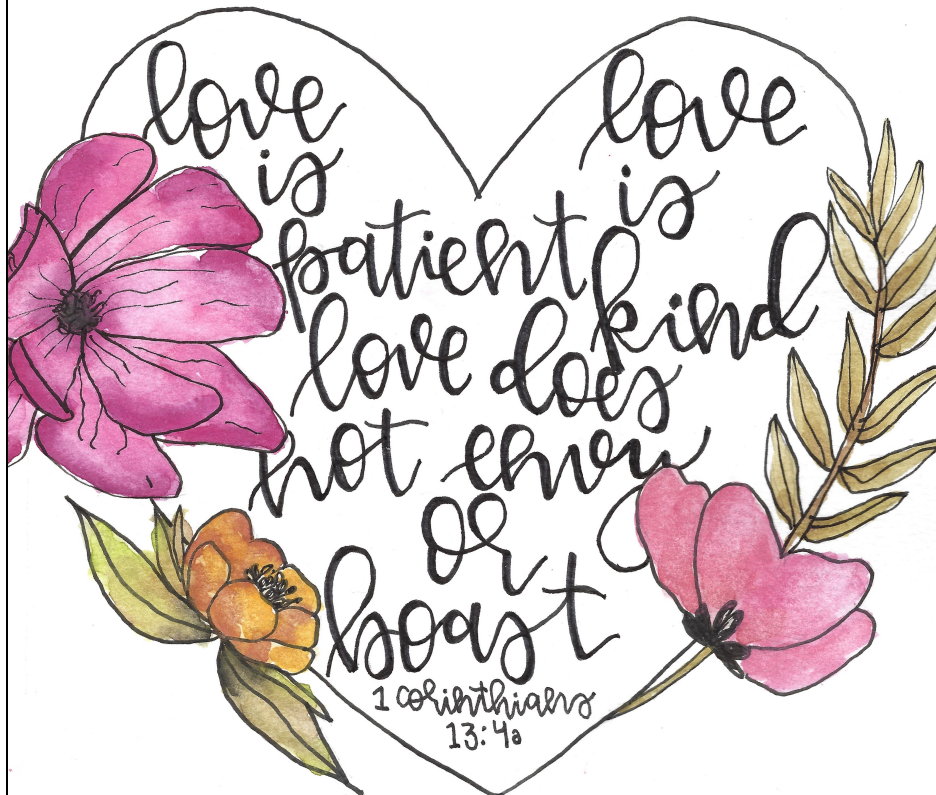 love
is
patient
love
is
kind
love does
not envy
or
boast
1 corinthians
13:4a